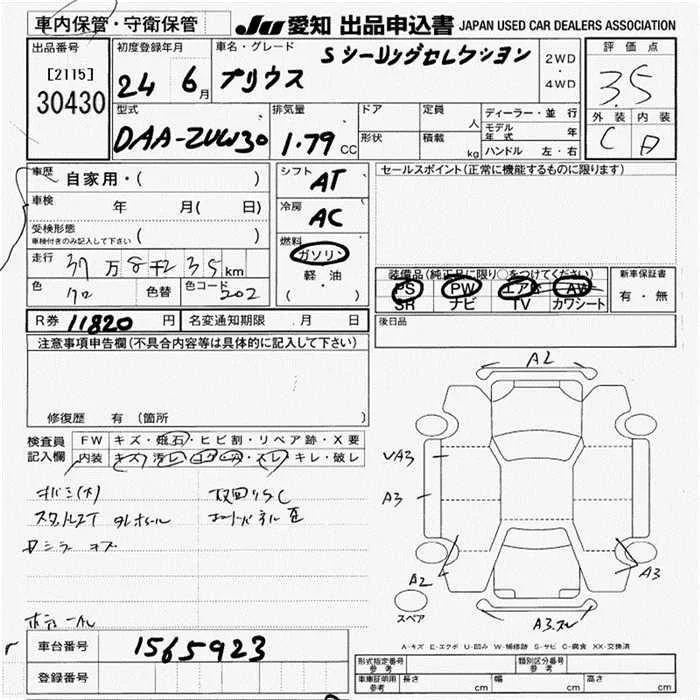 車内保管・守衛保管
JU 愛知 出品申込書 JAPAN USED CAR DEALERS ASSOCIATION
出品番号
[2115]
30430
初度登録年月
24 6月
車名・グレード
Sツーリングセレクション
プリウス
2WD
・
4WD
評価点
3.5
外装 内装
C
型式
DAA-ZVW30
排気量
1.79 CC
ドア
形状
定員
人
積載
kg
ディーラー・並行
モデル年式 年
ハンドル 左・右
車歴 自家用・( )
車検 年 月( 日)
受検形態
車検付きのみ記入して下さい ( )
走行 37万8千235km
色 色替 色コード 202
シフト
AT
冷房
AC
燃料
ガソリン
軽・油
( ・ )
セールスポイント(正常に機能するものに限ります)
装備品(純正品に限り○をつけてください)
PS PW エアB AW
SR ナビ TV カワシート
新車保証書
有・無
R券 11820 円 名変通知期限 月 日
後日品
注意事項申告欄(不具合内容等は具体的に記入して下さい)
修復歴 有 (箇所
検査員
記入欄
FW キズ・飛石・ヒビ割・リペア跡・X要
内装 キズ・汚レ・コゲ・穴・スレ・キレ・破レ
A2
VA3
A3
A2
A3
A3.
スペア
A-キズ E-エクボ U-凹み W-補修跡 S-サビ C-腐食 XX-交換済
車台番号 1565923
登録番号
型式指定番号
参考
類別区分番号
参考
車庫証明用
参考
長さ cm 幅 cm 高さ cm